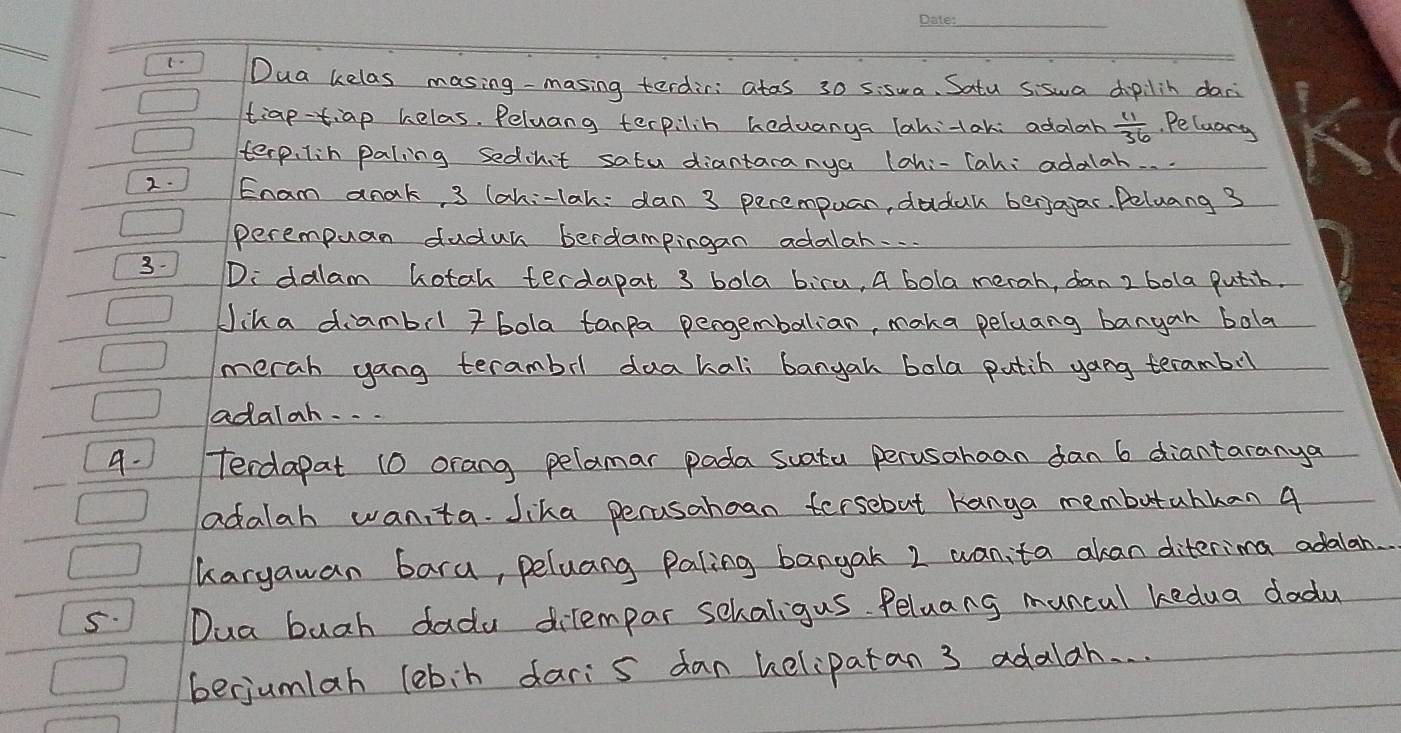 Date:
1. Dua kelas masing-masing terdiri atas 30 siswa. Satu siswa dipilih dari
tiap-tiap kelas. Peluang terpilih keduanya laki-laki adalah 11/36. Peluang
terpilih paling sedikit satu diantaranya laki-laki adalah...
2. Enam anak, 3 laki-laki dan 3 perempuan, duduk berjajar. Peluang 3
perempuan duduk berdampingan adalah...
3. Di dalam kotak terdapat 3 bola biru, 4 bola merah, dan 2 bola putih.
Jika diambil 7 bola tanpa pengembalian, maka peluang banyak bola
merah yang terambil dua kali banyak bola putih yang terambil
adalah...
4. Terdapat 10 orang pelamar pada suatu perusahaan dan 6 diantaranya
adalah wanita. Jika perusahaan tersebut hanya membutuhkan 4
karyawan baru, peluang paling banyak 2 wanita akan diterima adalah...
5. Dua buah dadu dilempar sekaligus. Peluang muncul kedua dadu
berjumlah lebih dari 5 dan kelipatan 3 adalah...